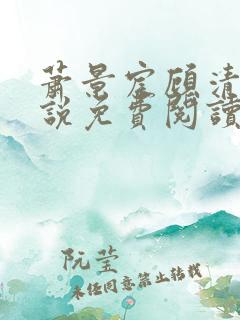 萧景宸顾清
說免費閱讀
阮莹
未经同意禁止转载